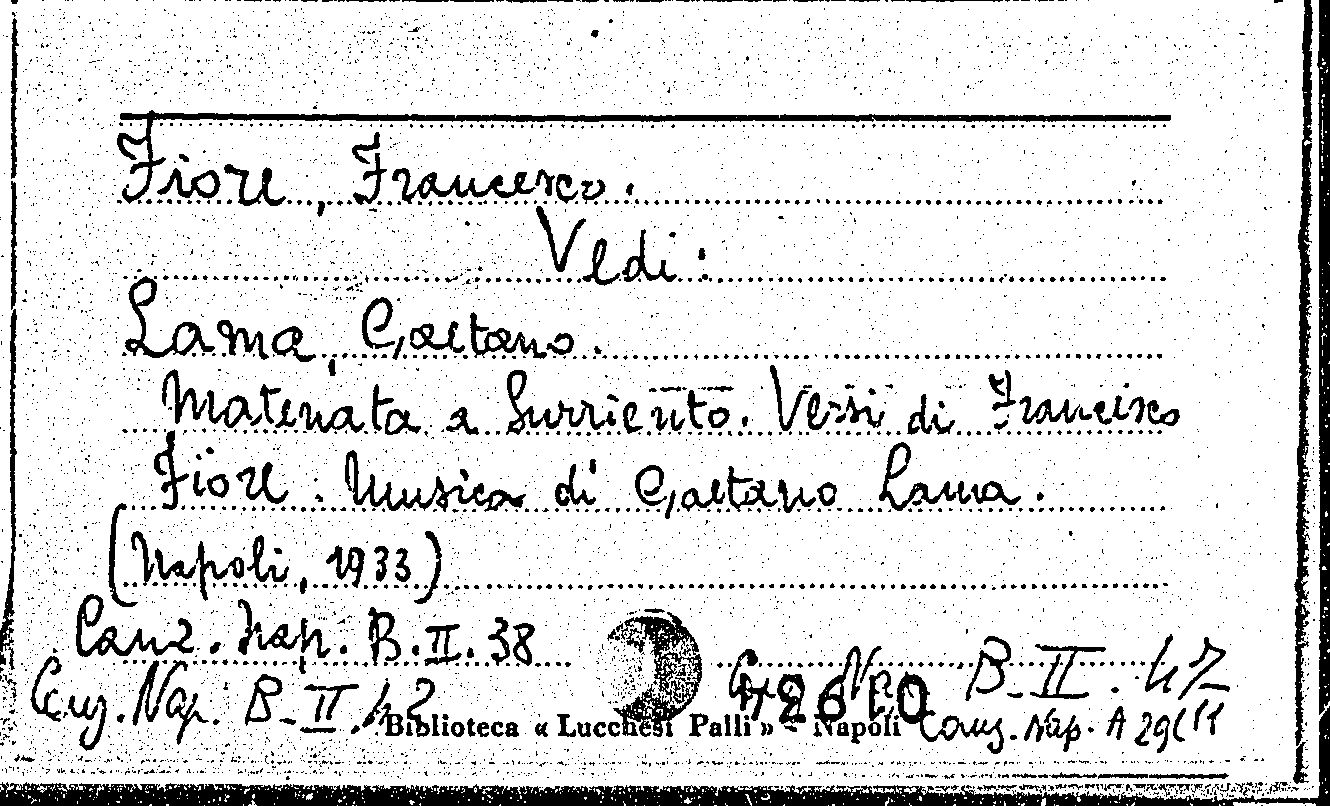 Fiore, Francesco.
Vedi:
Lama, Gaetano.
Matenata a Surriento. Versi di Francesco
Fiore. Musica di Gaetano Lama.
(Napoli, 1933)
Canz. Nap. B. II. 38
Canz. Nap. B-II. 42
Canz. Nap. B-II. 47
Biblioteca « Lucchesi Palli » - Napoli
Canz. Nap. A 29